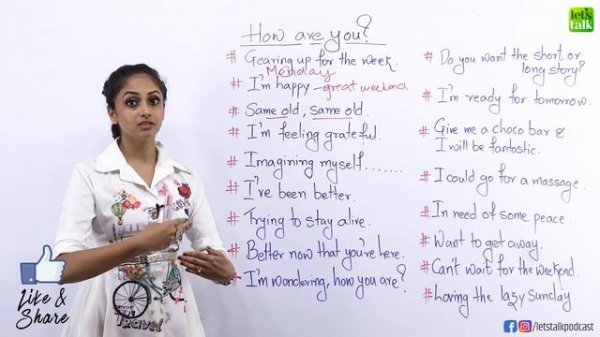 let's
talk
How are you?
# Gearing up for the week.
Monday
# I'm happy - great weekend
# Same old, same old.
# I'm feeling grateful.
# Imagining myself.......
# I've been better.
# Trying to stay alive.
# Better now that you're here.
# I'm wondering, how you are?
# Do you want the short or
long story?
# I'm ready for tomorrow.
# Give me a choco bar &
I will be fantastic.
# I could go for a massage.
# In need of some peace.
# Want to get away.
# Can't wait for the weekend.
# Loving the lazy Sunday
Travel
Like &
Share
/letstalkpodcast